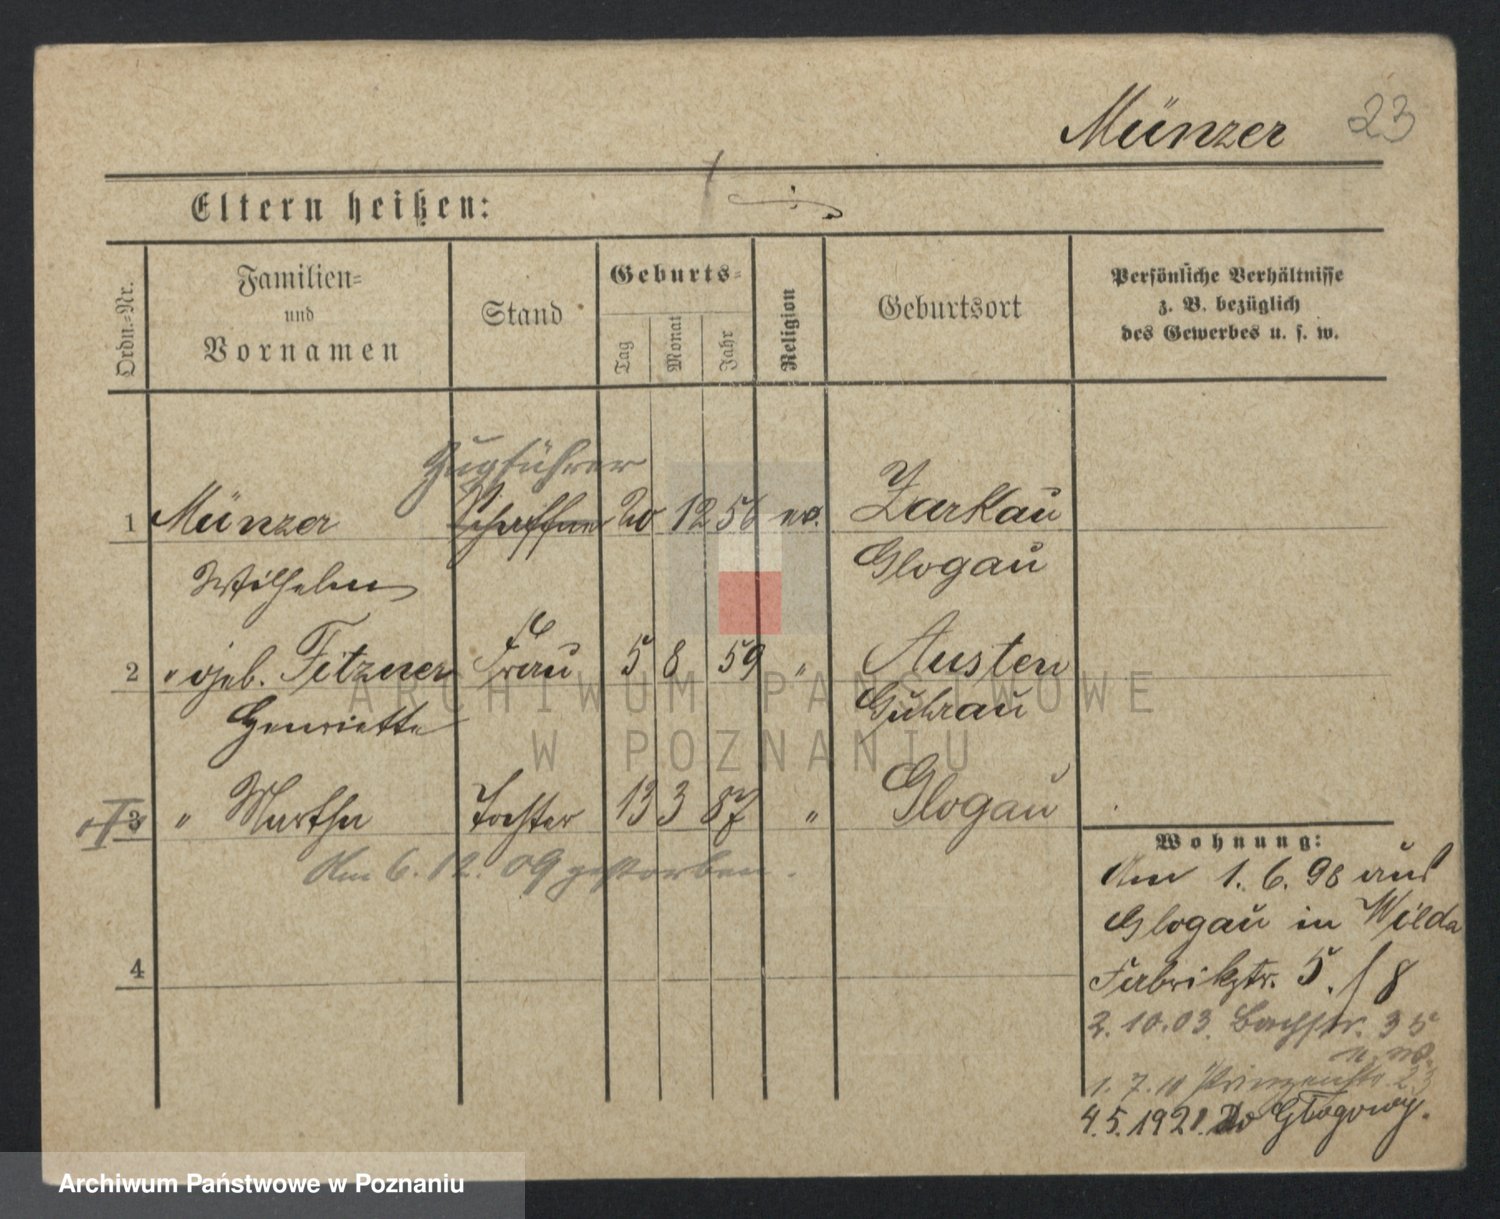 Münzer 23
Eltern heißen:
Ordn.-Nr.
Familien-
und
Vornamen
Stand
Geburts-
Tag
Monat
Jahr
Religion
Geburtsort
Persönliche Verhältnisse
z. B. bezüglich
des Gewerbes u. s. w.
Zugführer
1 Münzer Schaffner 20 12 56 ev. Zarkau
Wilhelm Glogau
2 " geb. Fitzner Frau 5 8 59 " Austen
Henriette Guhrau
3 " Martha Tochter 13 3 87 " Glogau
Am 6. 12. 09 gestorben.
4
Wohnung:
Am 1. 6. 98 aus
Glogau in Wilda
Fabrikstr. 5. / 8
2. 10. 03. Bachstr. 35
1. 7. 11 Prinzenstr. 23
4. 5. 1921. Do Głogowy.
ARCHIWUM PAŃSTWOWE
W POZNANIU
Archiwum Państwowe w Poznaniu